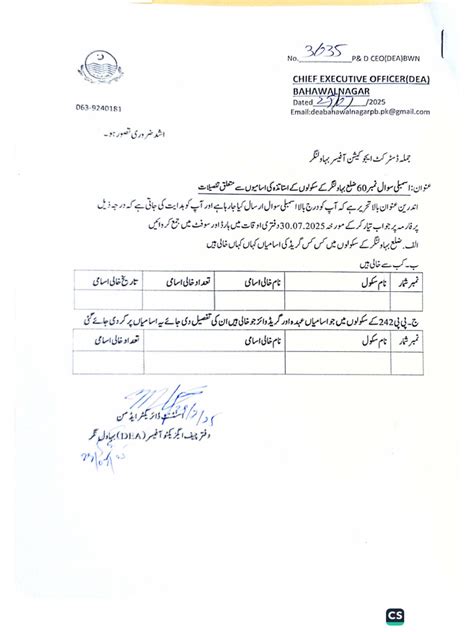 No. 3635 P& D CEO(DEA)BWN
CHIEF EXECUTIVE OFFICER(DEA)
BAHAWALNAGAR
Dated /2025
Email:deabahawalnagarpb.pk@gmail.com
063-9240181
اشد ضروری تصور ہو۔
جملہ ڈسٹرکٹ ایجوکیشن آفیسر بہاولنگر
عنوان: اسمبلی سوال نمبر 60 ضلع بہاولنگر کے سکولوں کے اساتذہ کی اسامیوں سے متعلق تفصیلات
اندریں عنوان بالا تحریر ہے کہ آپ کو درج بالا اسمبلی سوال ارسال کیا جا رہا ہے اور آپ کو ہدایت کی جاتی ہے کہ درجہ ذیل
پرفارمہ پر جواب تیار کر کے مورخہ 30.07.2025 دفتری اوقات میں ہارڈ اور سوفٹ میں جمع کروائیں
الف۔ ضلع بہاولنگر کے سکولوں میں کس کس گریڈ کی اسامیاں کہاں کہاں خالی ہیں
ب۔ کب سے خالی ہیں
نمبر شمار نام سکول نام خالی اسامی تعداد خالی اسامی تاریخ خالی اسامی
ج۔ پی پی 242 کے سکولوں میں جو اسامیاں عہدہ اور گریڈ وائز جو خالی ہیں ان کی تفصیل دی جائے یہ اسامیاں پر کر دی جائے گئی
نمبر شمار نام سکول نام خالی اسامی تعداد خالی اسامی
اسسٹنٹ ڈائریکٹر ایڈمن
دفتر چیف ایگزیکٹو آفیسر (DEA) بہاول نگر
CS